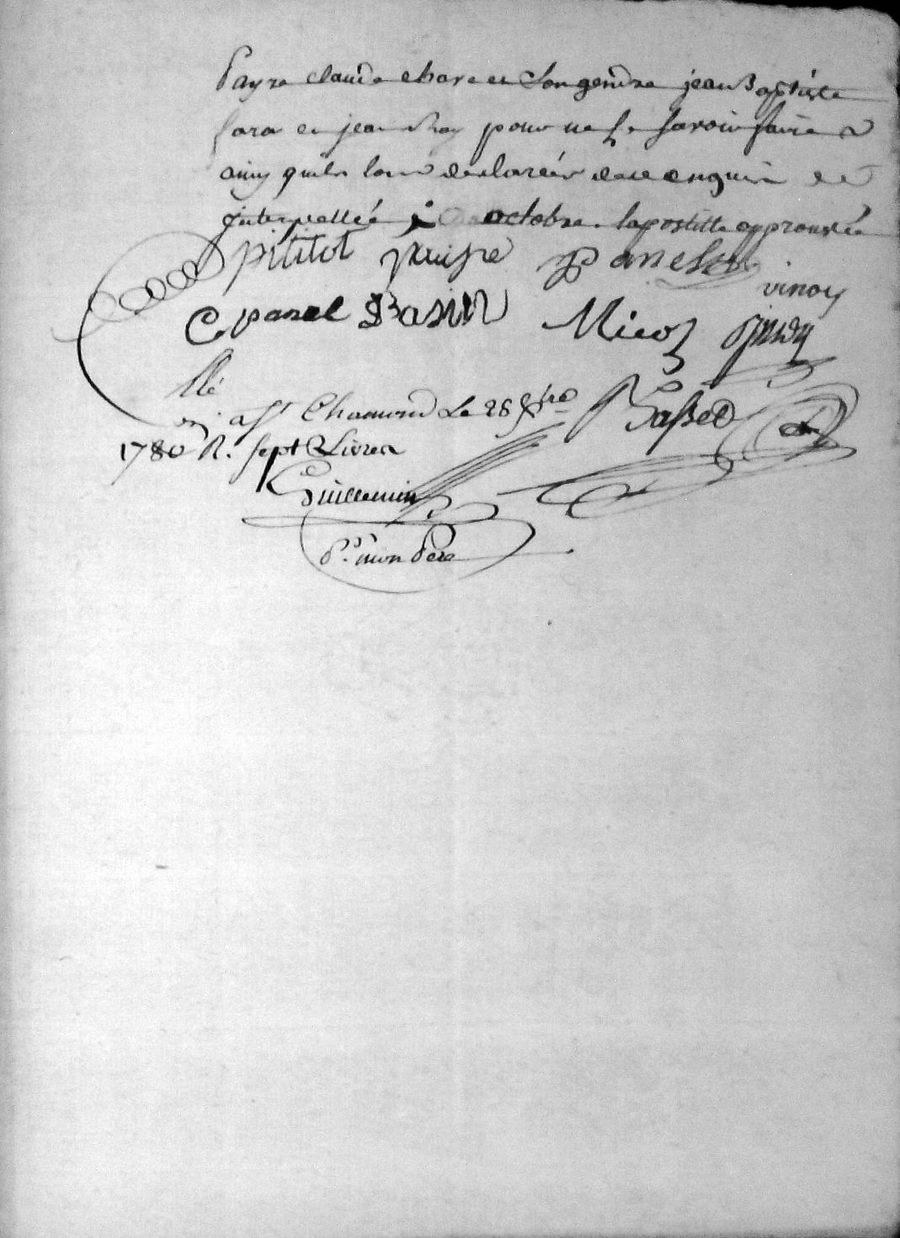 Payre claude chave et son gendre jean Baptiste
fara et jean pour ne le savoir faire
ainy quils lont declarée de ce enquis et
jnterpellée octobre. lapostille approuvée
pititot
vinoy
C panel Basin Nicol
Basset
llé
a St Chamond Le 28 8bre
1780 R. sept Livres
Guillemin
Pr. mon Pere